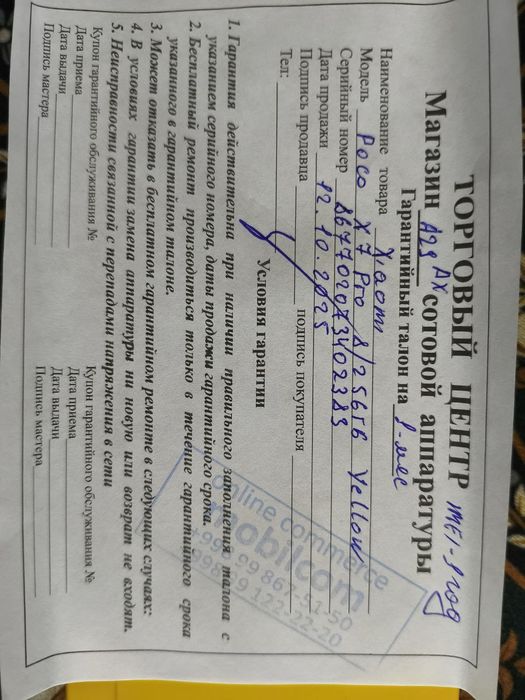 ТОРГОВЫЙ ЦЕНТР IMEI-1 год
Магазин А29 АХ сотовой аппаратуры
Гарантийный талон на 1-мес
Наименование товара Xiaomi
Модель Poco X7 Pro 8/256ГБ Yellow
Серийный номер 867702073402383
Дата продажи 12.10.2025
Подпись продавца подпись покупателя
Тел:
Условия гарантии
1. Гарантия действительна при наличии правильного заполнения талона с
указанием серийного номера, даты продажи гарантийного срока.
2. Бесплатный ремонт производиться только в течение гарантийного срока
указанного в гарантийном талоне.
3. Может отказать в бесплатном гарантийном ремонте в следующих случаях:
4. В условиях гарантии замена аппаратуры ни новую или возврат не входят.
5. Неисправности связанной с перепадами напряжения в сети
Купон гарантийного обслуживания № Купон гарантийного обслуживания №
Дата приема Дата приема
Дата выдачи Дата выдачи
Подпись мастера Подпись мастера
online commerce
mobilcom
+998 99 867-51-50
+998 99 122-22-20